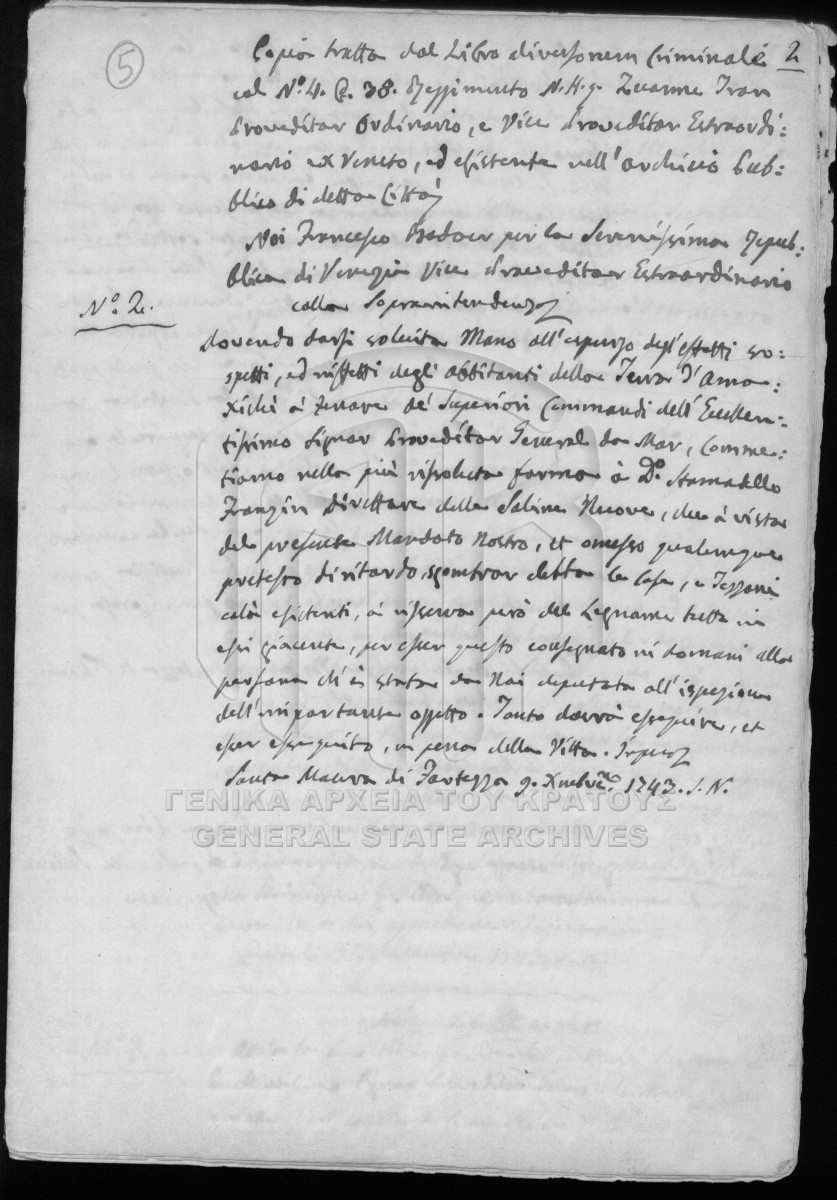 5
2
Copia tratta dal Libro diversorum Criminale
al Nº. 4. C. 38. Reggimento N. H. q. Zuanne Tron
Proveditor Ordinario, e Vice Proveditor Estraordi:
nario ex Veneto, ed esistente nell'archivio Pub:
blico di detta Città
Noi Francesco Badoer per la Serenissima Repub:
blica di Venezia Vice Proveditor Estraordinario
colla Sopraintendenza
Nº. 2.
Dovendo darsi soluta Mano all'espurgo degl'effetti so:
spetti, ed infetti degl'abbitanti della Terra d'Ama:
xichi à tenore de' Superiori Commandi dell'Eccellen:
tissimo Signor Proveditor General da Mar, Comme:
tiamo nella più rissoluta forma à Dº. Stamatello
Franzin Direttore delle Saline Nuove, che à vista
del presente Mandato Nostro, et omesso qualunque
pretesto di ritardo, sgombrar debba le Case, e Tezzoni
colà esistenti, à risserva però del Legname tutto in
essi giacente, per esser questo consegnato in domani alla
persona ch'è stata da Noi deputata all'ispezione
dell'importante oggetto. Tanto dovrà esseguire, et
esser esseguito, in pena della Vitta. In quoz
Santa Maura di Fortezza 9. Xmbre. 1743. S. N.
ΓΕΝΙΚΑ ΑΡΧΕΙΑ ΤΟΥ ΚΡΑΤΟΥΣ
GENERAL STATE ARCHIVES